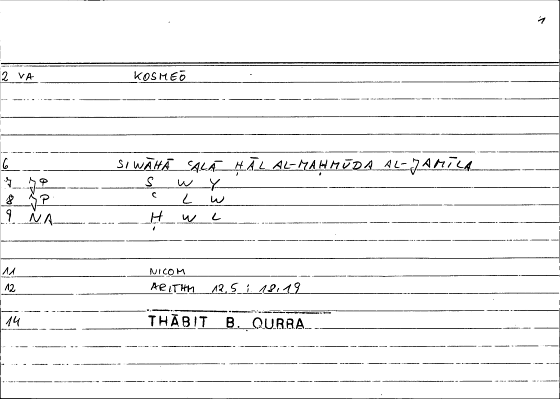 1
2 VA KOSMEŌ
6 SIWĀHĀ ʿALĀ ḤĀL AL-MAḤMŪDA AL-JAMĪLA
7 JP S W Y
8 JP ʿ L W
9 NA Ḥ W L
11 NICOM
12 ARITHM 12,5 ; 18,19
14 THĀBIT B. QURRA